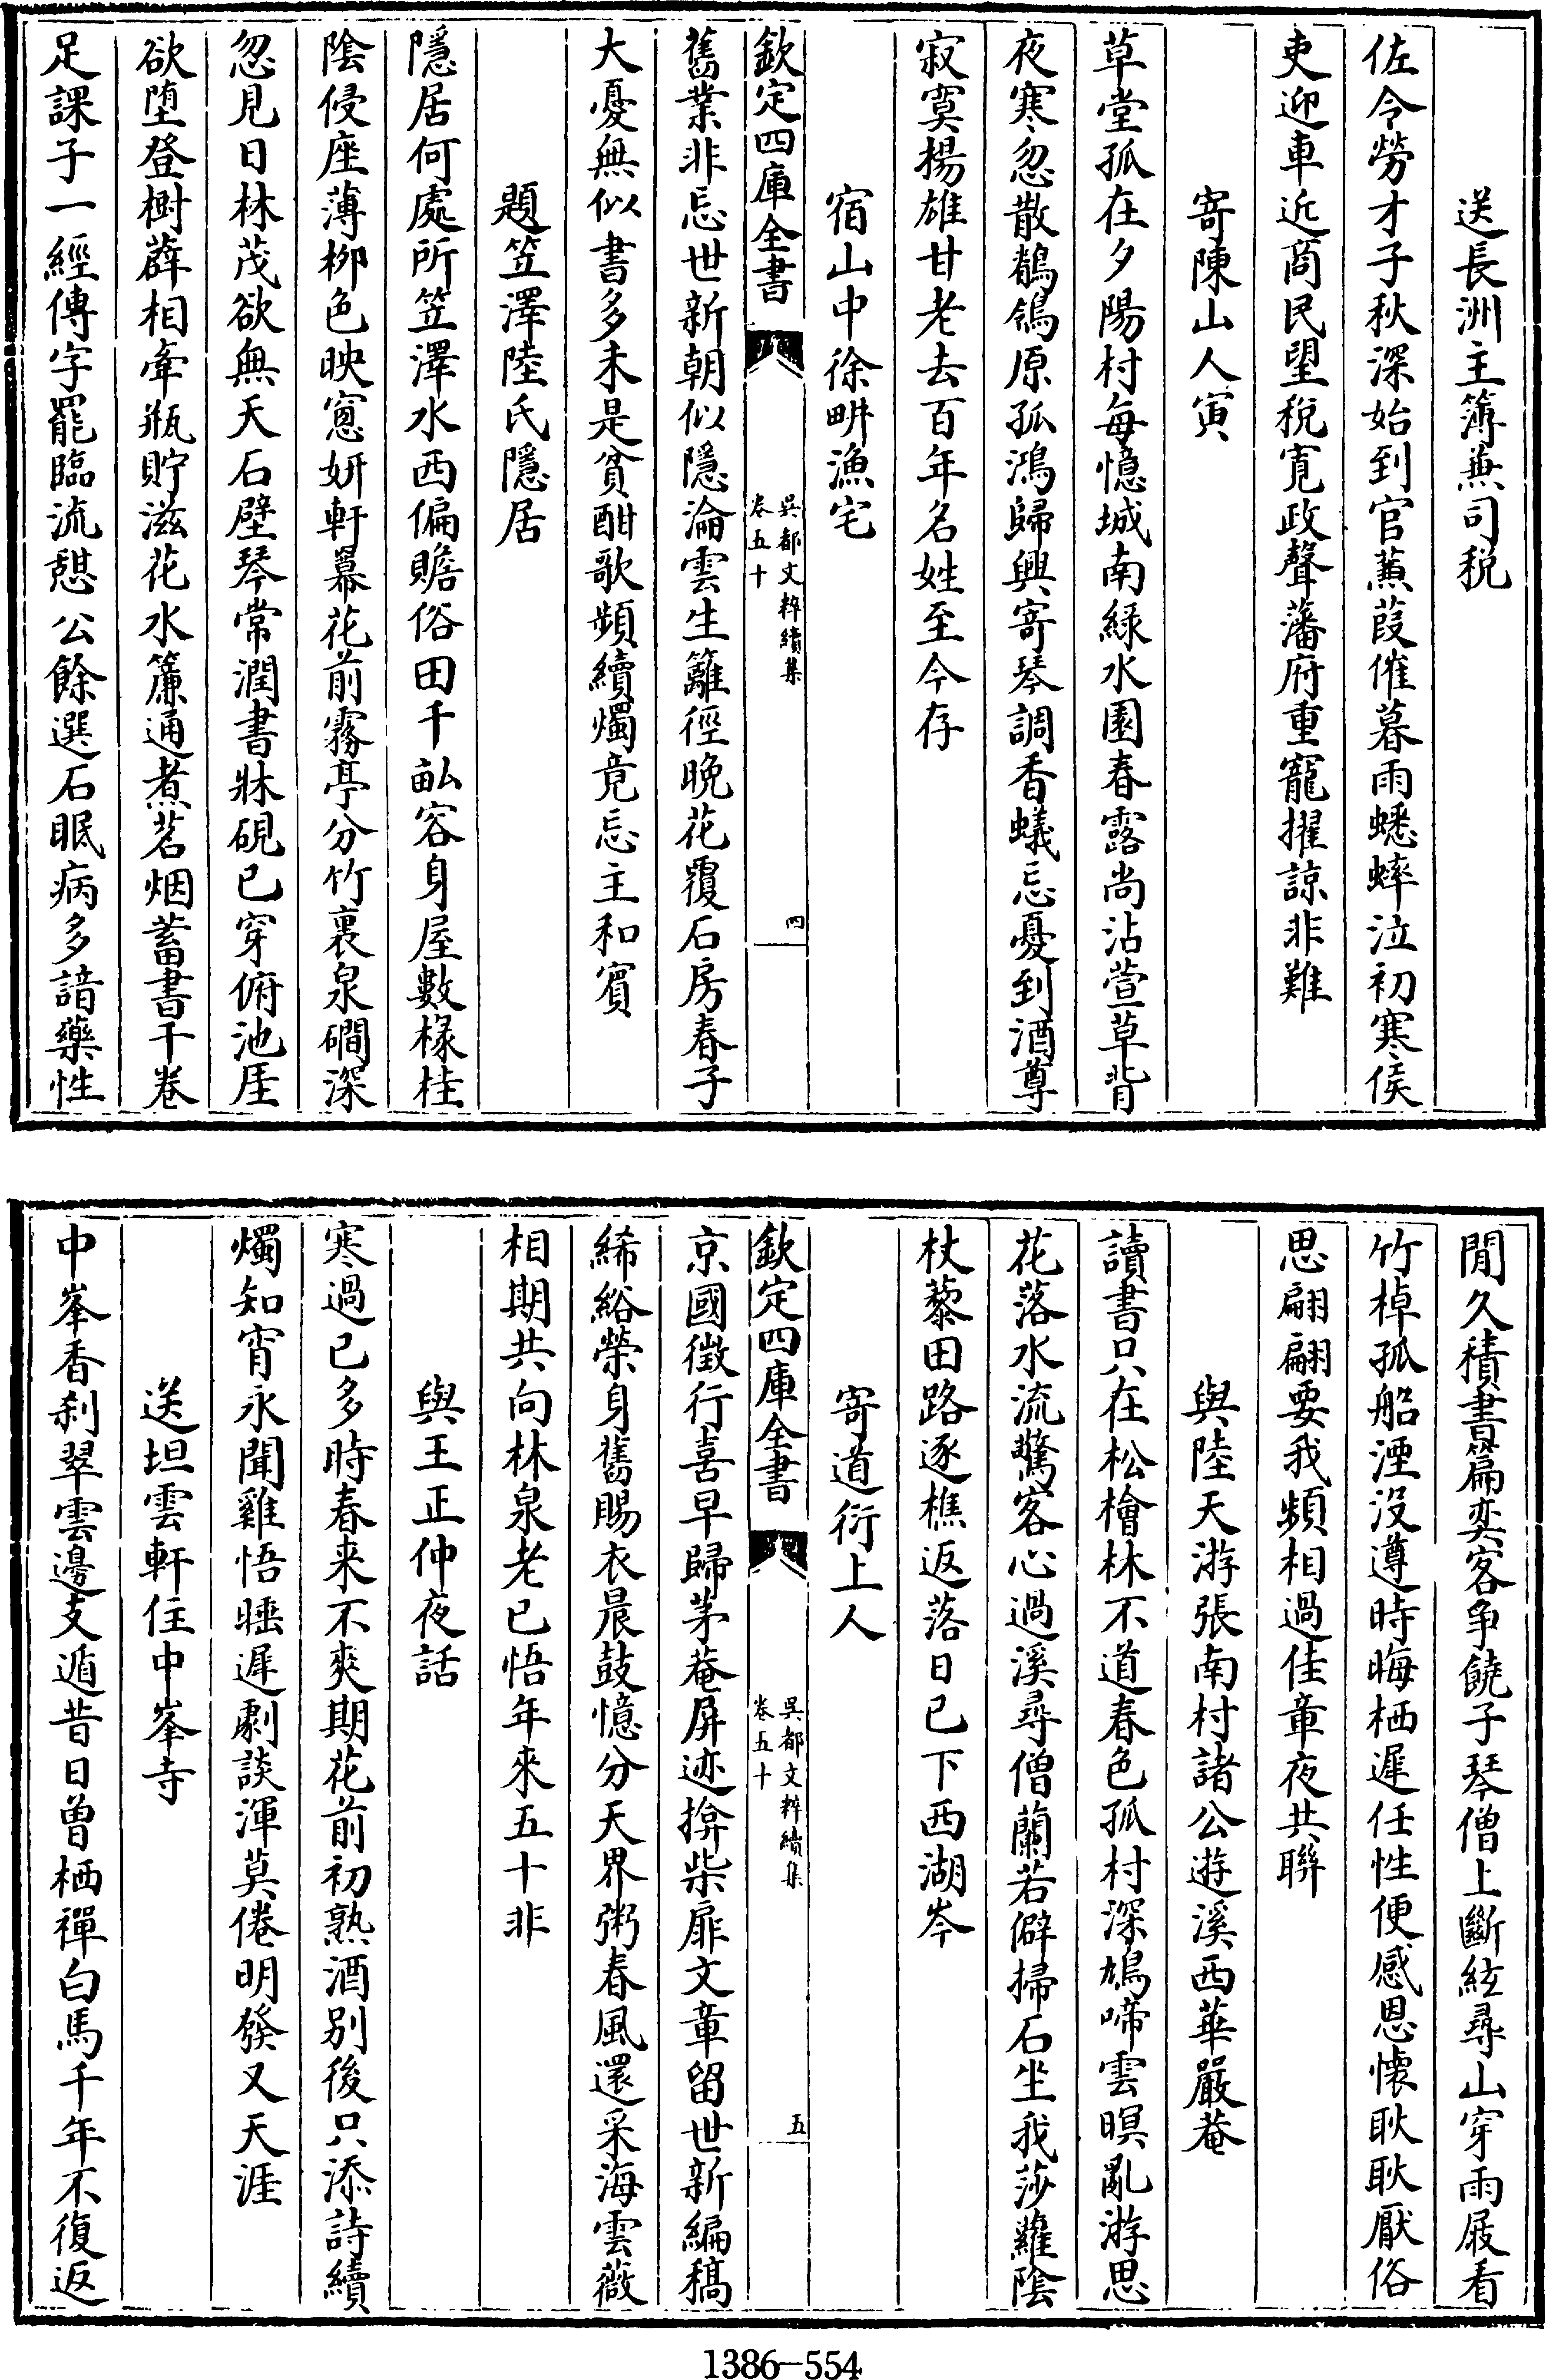 送長洲主簿蕪司税
佐令勞才子秋深始到官蒹葭催暮雨蟋蟀泣初寒侯
吏迎車近商民望稅寛政聲藩府重寵擢諒非難
寄陳山人寅
草堂孤在夕陽村每憶城南緑水園春露尚沾萱草背
夜寒忽散鶺鴒原孤鴻歸興寄琴調香蟻忘憂到酒尊
寂寞楊雄甘老去百年名姓至今存
宿山中徐畊漁宅
欽定四庫全書
吳都文粹續集
卷五十
四
舊業非忘世新朝似隱淪雲生籬徑晚花覆石房春子
大憂無似書多未是貧酣歌頻續燭竟忘主和賓
題笠澤陸氏隱居
隱居何處所笠澤水西偏贍俗田千畝容身屋數椽桂
陰侵座薄柳色映窻妍軒幕花前霧亭分竹裏泉磵深
忽見日林茂欲無天石壁琴常潤書牀硯已穿俯池厓
欲堕登樹薜相牽瓶貯滋花水簾通煮茗烟蓄書千卷
足課子一經傳字罷臨流憩公餘選石眠病多諳藥性
閒久積書篇奕客争饒子琴僧上斷絃尋山穿雨屐看
竹棹孤船湮沒遵時晦栖遲任性便感恩懐耿耿厭俗
思翩翩要我頻相過佳章夜共聨
與陸天游張南村諸公遊溪西華嚴菴
讀書只在松檜林不道春色孤村深鳩啼雲暝亂游思
花落水流驚客心過溪尋僧蘭若僻掃石坐我莎蘿陰
杖藜田路逐樵返落日已下西湖岑
寄道衍上人
欽定四庫全書
吳都文粹續集
卷五十
五
京國徵行喜早歸茅菴屏迹揜柴扉文章留世新編稿
絺綌榮身舊賜衣晨鼓憶分天界粥春風還采海雲薇
相期共向林泉老已悟年來五十非
與王正仲夜話
寒過已多時春来不爽期花前初熟酒别後只添詩續
燭知宵永聞雞悟睡遲劇談渾莫倦明發又天涯
送坦雲軒住中峯寺
中峯香刹翠雲邊支遁昔日曾栖禪白馬千年不復返
1386-554